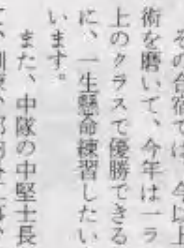 その合宿では、今以上
術を磨いて、今年は一ラ
上のクラスで優勝できる
に、一生懸命練習したい
います。
また、中隊の中堅士長